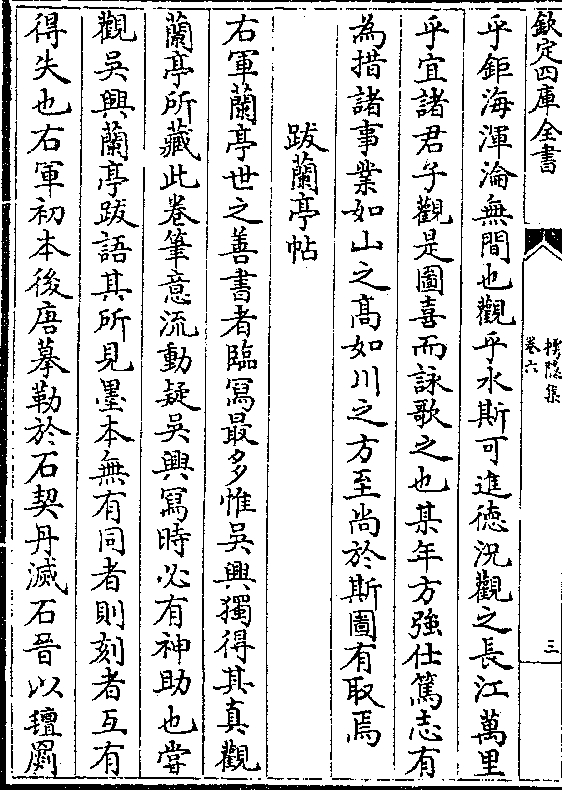 欽定四庫全書
樗隱集
卷六
三
乎鉅海渾淪無間也觀乎水斯可進徳況觀之長江萬里
乎宜諸君子觀是圖喜而詠歌之也某年方強仕篤志有
為措諸事業如山之髙如川之方至尚於斯圖有取焉
跋蘭亭帖
右軍蘭亭世之善書者臨寫最多惟吳興獨得其真觀
蘭亭所藏此卷筆意流動疑吳興寫時必有神助也嘗
觀吳興蘭亭跋語其所見墨本無有同者則刻者互有
得失也右軍初本後唐摹勒於石契丹滅石晉以氊罽